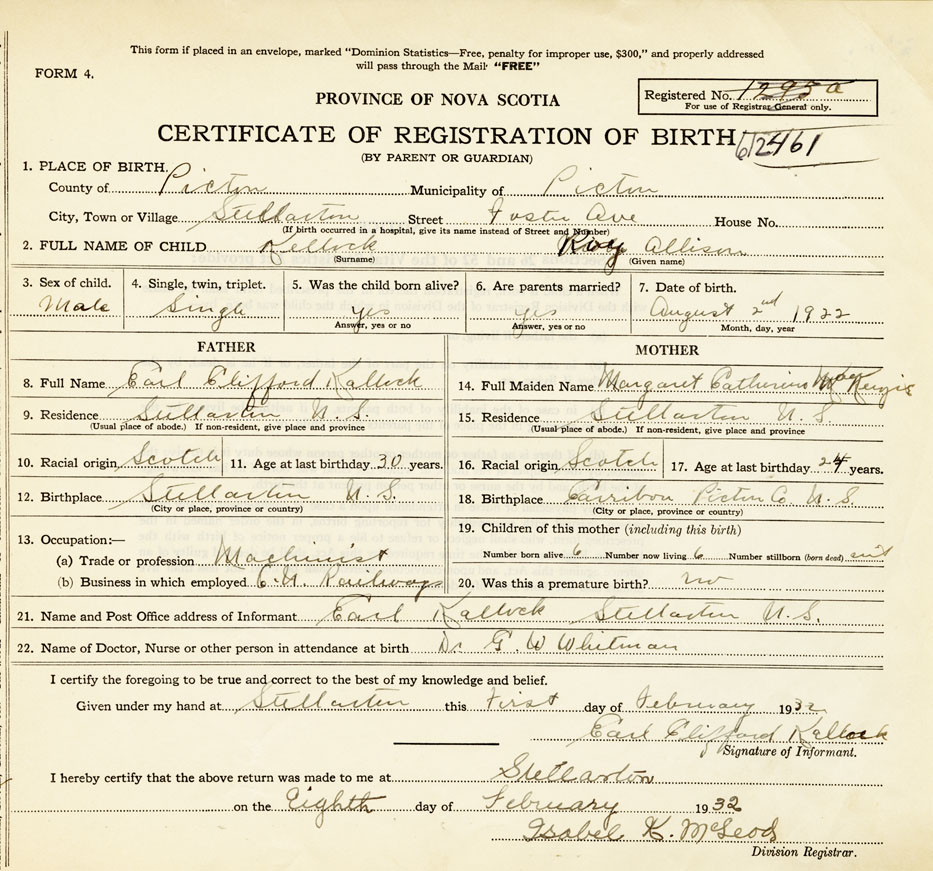 This form if placed in an envelope, marked "Dominion Statistics—Free, penalty for improper use, $300," and properly addressed
will pass through the Mail "FREE"
FORM 4.
Registered No. 1295a
For use of Registrar General only.
PROVINCE OF NOVA SCOTIA
CERTIFICATE OF REGISTRATION OF BIRTH
(BY PARENT OR GUARDIAN)
612461
1. PLACE OF BIRTH.
County of Pictou Municipality of Pictou
City, Town or Village Stellarton Street Foster Ave House No.
(If birth occurred in a hospital, give its name instead of Street and Number)
2. FULL NAME OF CHILD Kellock Roy Allison
(Surname) (Given name)
3. Sex of child. 4. Single, twin, triplet. 5. Was the child born alive? 6. Are parents married? 7. Date of birth.
Male Single yes yes August 2nd 1922
Answer, yes or no Answer, yes or no Month, day, year
FATHER MOTHER
8. Full Name Earl Clifford Kallock 14. Full Maiden Name Margaret Catherine
9. Residence Stellarton N.S. 15. Residence Stellarton N.S.
(Usual place of abode.) If non-resident, give place and province (Usual place of abode.) If non-resident, give place and province
10. Racial origin Scotch 11. Age at last birthday 30 years. 16. Racial origin Scotch 17. Age at last birthday 24 years.
12. Birthplace Stellarton N.S. 18. Birthplace Carribou Pictou Co. N.S.
(City or place, province or country) (City or place, province or country)
13. Occupation:— 19. Children of this mother (including this birth)
(a) Trade or profession Machinist Number born alive 6 Number now living 6 Number stillborn (born dead)
(b) Business in which employed C.N. Railways 20. Was this a premature birth? no
21. Name and Post Office address of Informant Earl Kallock Stellarton N.S.
22. Name of Doctor, Nurse or other person in attendance at birth Dr G. W Whitman
I certify the foregoing to be true and correct to the best of my knowledge and belief.
Given under my hand at Stellarton this First day of February 1932
Earl Clifford Kallock
Signature of Informant.
I hereby certify that the above return was made to me at Stellarton
on the Eighth day of February 1932
Isabel K. McLeod
Division Registrar.